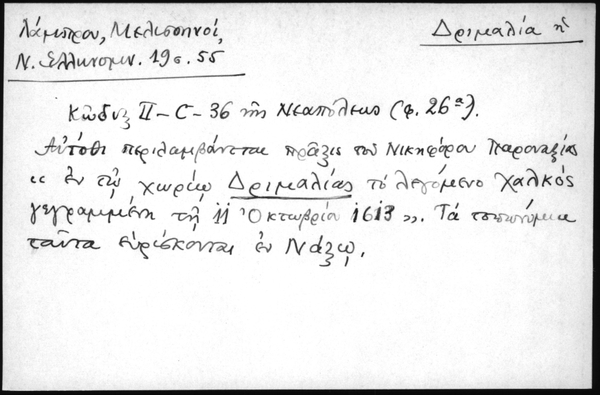 Λάμπρου, Μελισσηνοί,
Δριμαλία ἡ
Ν. Ἑλληνομν. 19 σ. 55
Κῶδιξ II-C-36 τῆς Νεαπόλεως (φ. 26ᵃ).
Αὐτόθι περιλαμβάνεται πρᾶξις τοῦ Νικηφόρου Παροναξίας
« ἐν τῷ χωρίῳ Δριμαλίας τὸ λεγόμενο Χαλκός
γεγραμμένη τῇ 11 Ὀκτωβρίου 1613 ». Τὰ τοπωνύμια
ταῦτα εὑρίσκονται ἐν Νάξῳ.